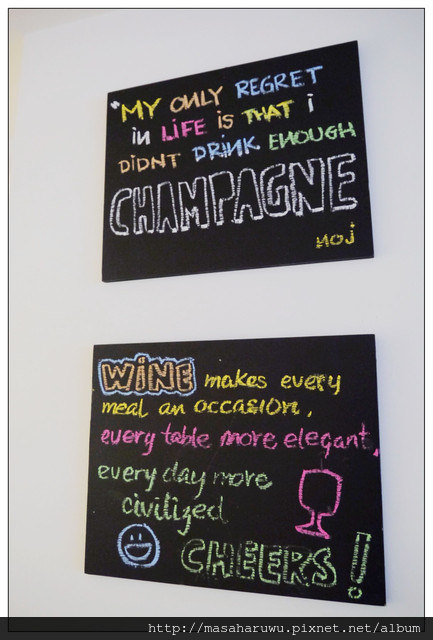 "MY ONLY REGRET
in LIFE iS THAT i
DiDNT DRiNK ENOUGH
CHAMPAGNE
noj
WiNE makes every
meal an occasion,
every table more elegant,
every day more
civilized
CHEERS!
http://masaharuwu.pixnet.net/album